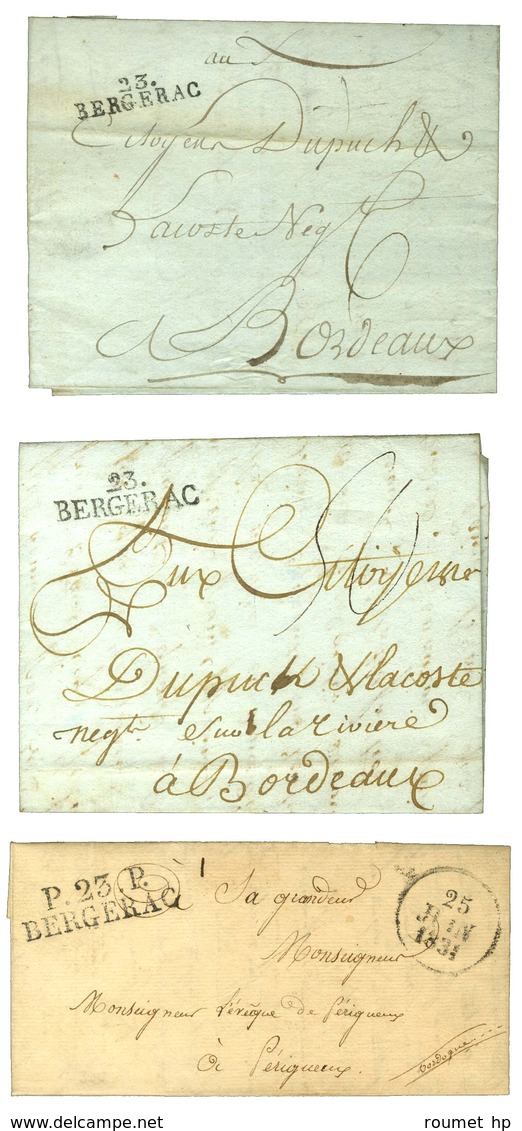 23.
BERGERAC
au
Citoyens Dupuch &
Lacoste Negt
a Bordeaux
23.
BERGERAC
Aux Citoyens
Dupuch & lacoste
negts sur la riviere
à Bordeaux
P. 23. P.
BERGERAC
25
JUIN
1831
Sa grandeur
Monseigneur
Monseigneur l'évêque de Périgueux
à Périgueux.
Dordogne
www.delcampe.net
roumet hp